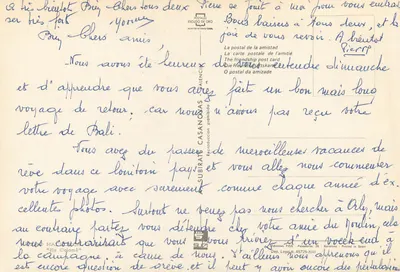 si très bientôt Bien Chers tous deux
ser très fort Yvonne
Bien Chers amis,
Nous avons été heureux de vous entendre dimanche
et d'apprendre que vous aviez fait un bon mais long
voyage de retour, car nous n'avions pas reçu votre
lettre de Bali.
Vous avez dû passer de merveilleuses vacances de
rêve dans ce lointain pays et vous allez nous commenter
votre voyage avec surement comme chaque année d'ex
cellente photos. Surtout ne venez pas nous chercher à Orly, mais
au contraire partez vous détendre chez votre amie du Moulin, cela
nous contrarierait que vous vous priviez d'un week end à
la campagne, à cause de nous. D'ailleurs nous apprenons qu'il
est encore question de grève et il peut y avoir encore des perturbation
se joint à moi pour vous embras
Bons baisers à tous deux, et la
joie de vous revoir. A bientôt
Pierre
La postal de la amistad
La carte postale de l'amitié
The friendship post card
O postal da amizade
SUBIRATS CASANOVAS